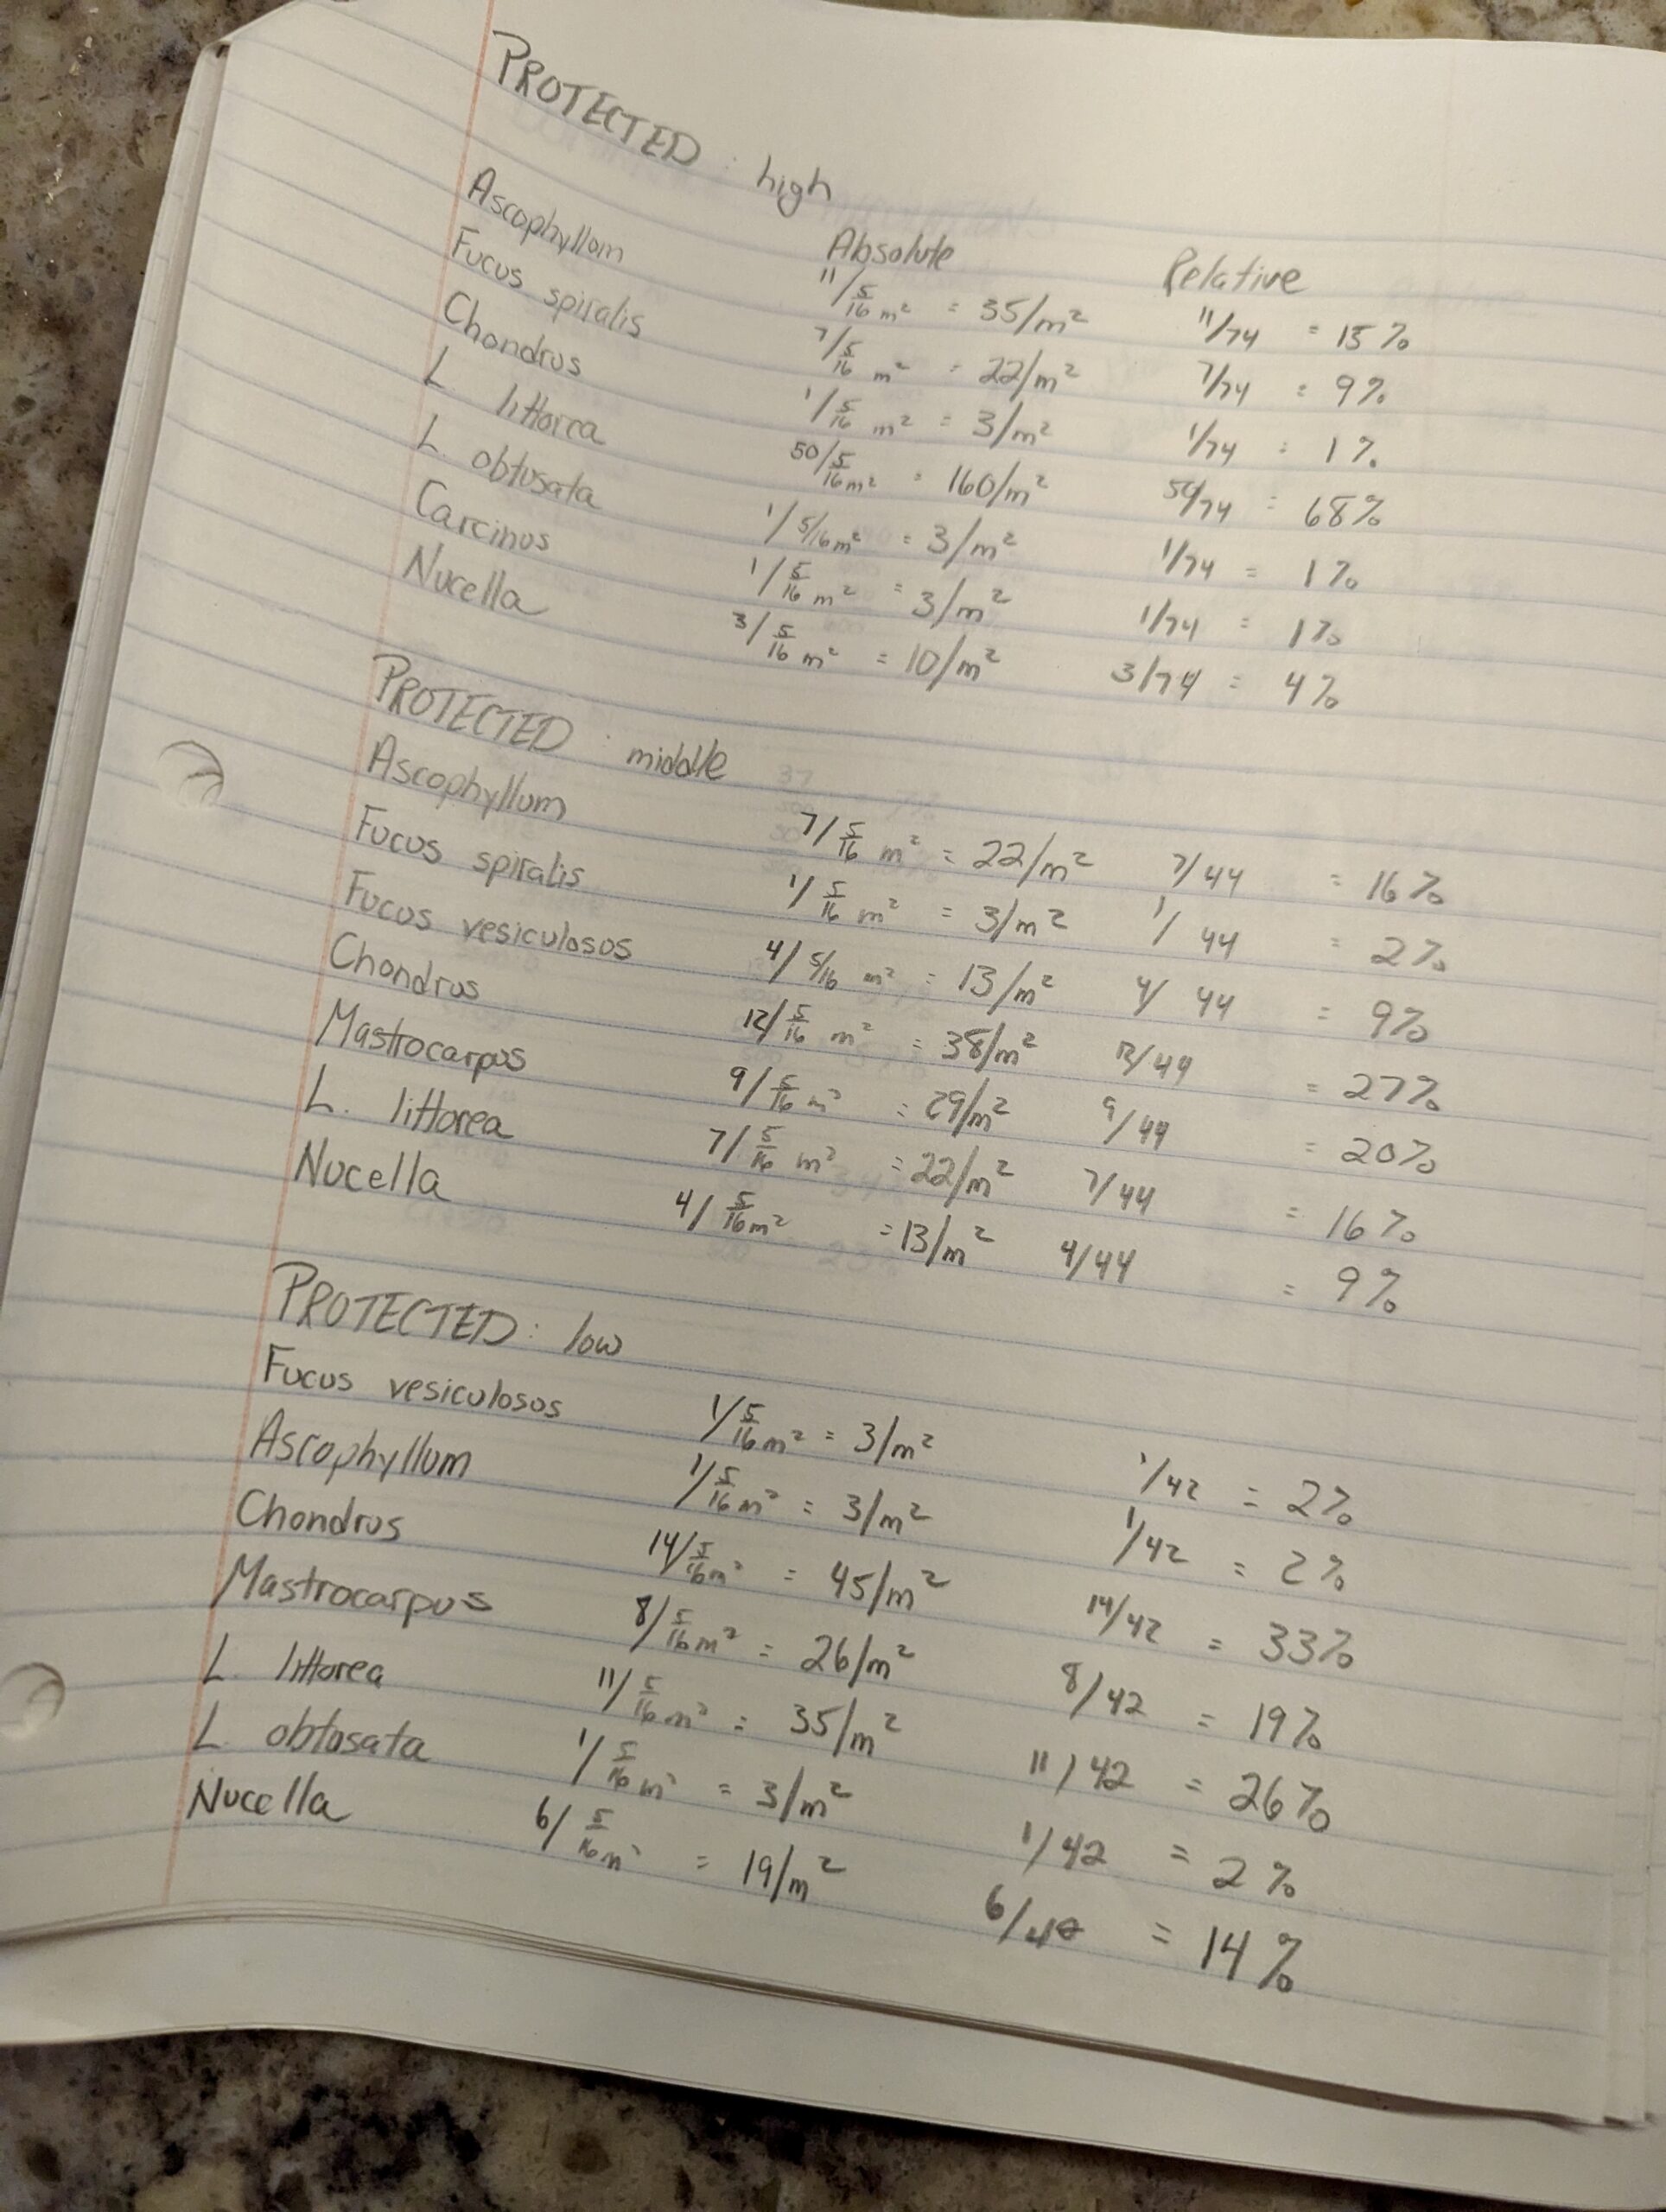 PROTECTED : high
Absolute Relative
Ascophyllum 11/5/16 m² = 35/m² 11/74 = 15%
Fucus spiralis 7/5/16 m² = 22/m² 7/74 = 9%
Chondrus 1/5/16 m² = 3/m² 1/74 = 1%
L littorea 50/5/16 m² = 160/m² 50/74 = 68%
L obtusata 1/5/16 m² = 3/m² 1/74 = 1%
Carcinus 1/5/16 m² = 3/m² 1/74 = 1%
Nucella 3/5/16 m² = 10/m² 3/74 = 4%
PROTECTED : middle
Ascophyllum 7/5/16 m² = 22/m² 7/44 = 16%
Fucus spiralis 1/5/16 m² = 3/m² 1/44 = 2%
Fucus vesiculosos 4/5/16 m² = 13/m² 4/44 = 9%
Chondrus 12/5/16 m² = 38/m² 12/44 = 27%
Mastrocarpus 9/5/16 m² = 29/m² 9/44 = 20%
L. littorea 7/5/16 m² = 22/m² 7/44 = 16%
Nucella 4/5/16 m² = 13/m² 4/44 = 9%
PROTECTED : low
Fucus vesiculosos 1/5/16 m² = 3/m² 1/42 = 2%
Ascophyllum 1/5/16 m² = 3/m² 1/42 = 2%
Chondrus 14/5/16 m² = 45/m² 14/42 = 33%
Mastrocarpus 8/5/16 m² = 26/m² 8/42 = 19%
L littorea 11/5/16 m² = 35/m² 11/42 = 26%
L obtusata 1/5/16 m² = 3/m² 1/42 = 2%
Nucella 6/5/16 m² = 19/m² 6/42 = 14%